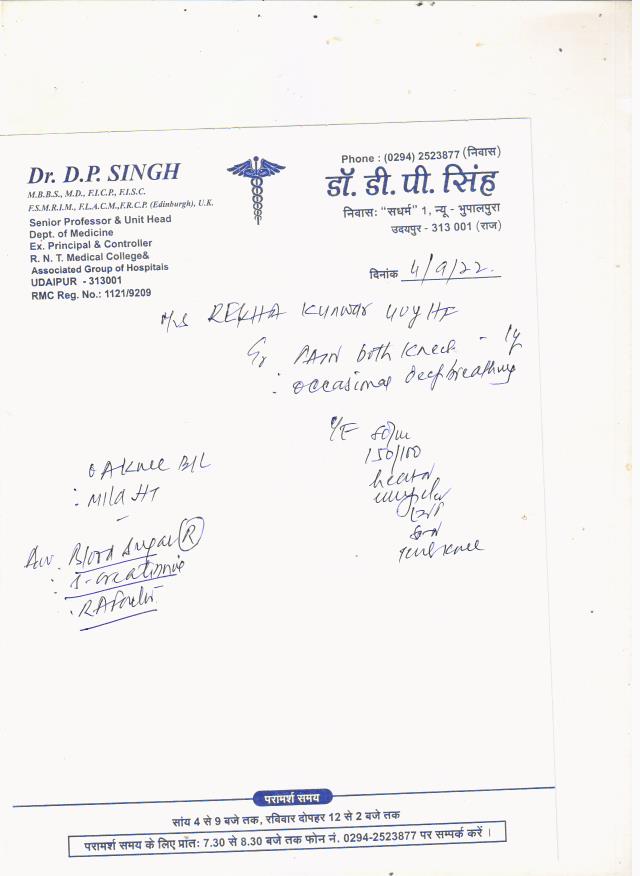 Dr. D.P. SINGH
M.B.B.S., M.D., F.I.C.P., F.I.S.C.
F.S.M.R.I.M., F.L.A.C.M.,F.R.C.P. (Edinburgh), U.K.
Senior Professor & Unit Head
Dept. of Medicine
Ex. Principal & Controller
R. N. T. Medical College&
Associated Group of Hospitals
UDAIPUR - 313001
RMC Reg. No.: 1121/9209
Phone : (0294) 2523877 (निवास)
डॉ. डी. पी. सिंह
निवास: "सधर्म" 1, न्यू - भुपालपुरा
उदयपुर - 313 001 (राज)
दिनांक 4/9/22.
REKHA Kunwar
PAIN both Knee - 1y
: occasional deep breathing
O/E 80/m
150/100
heart
OA Knee B/L
: Mild HT
Adv. Blood Sugar (R)
: S-creatinine
. RA Factor
परामर्श समय
सांय 4 से 9 बजे तक, रविवार दोपहर 12 से 2 बजे तक
परामर्श समय के लिए प्रॉत: 7.30 से 8.30 बजे तक फोन नं. 0294-2523877 पर सम्पर्क करें ।